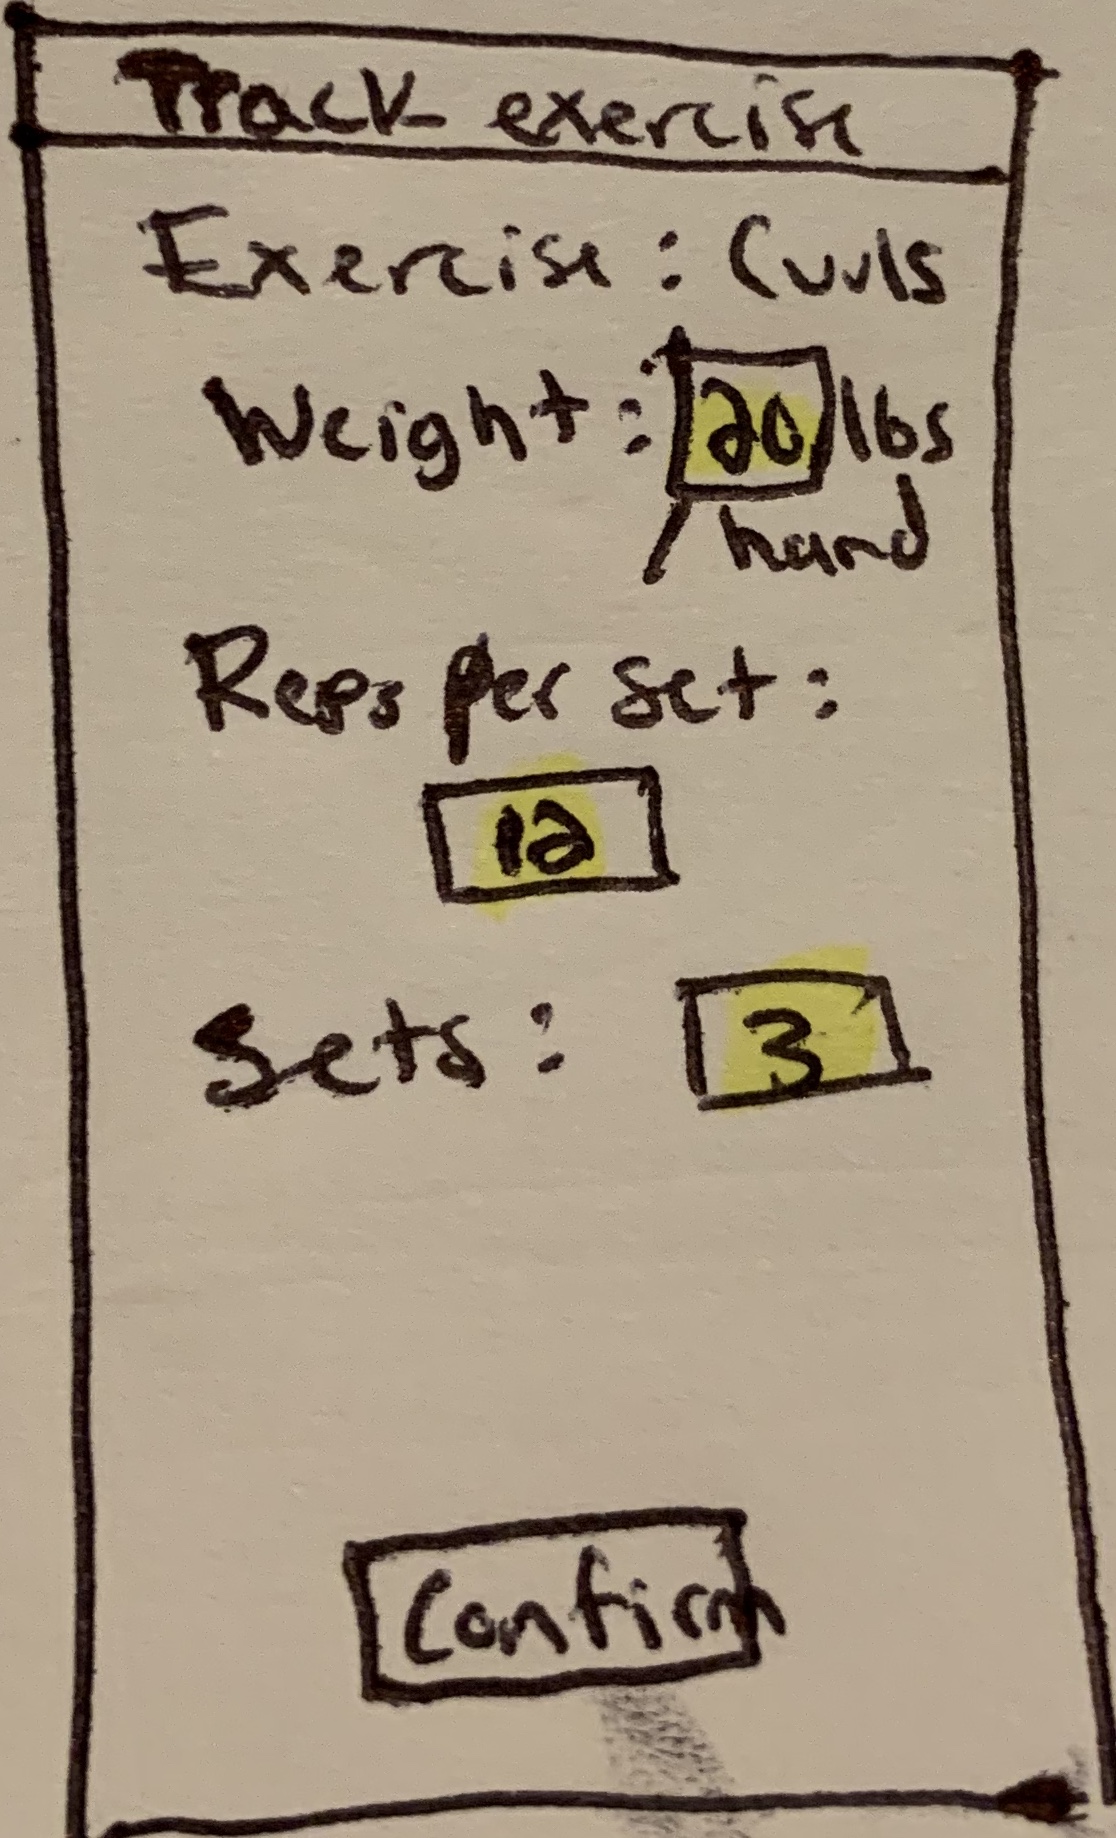 Track exercise
Exercise: Curls
Weight: 20 lbs
/ hand
Reps per set:
12
Sets: 3
Confirm